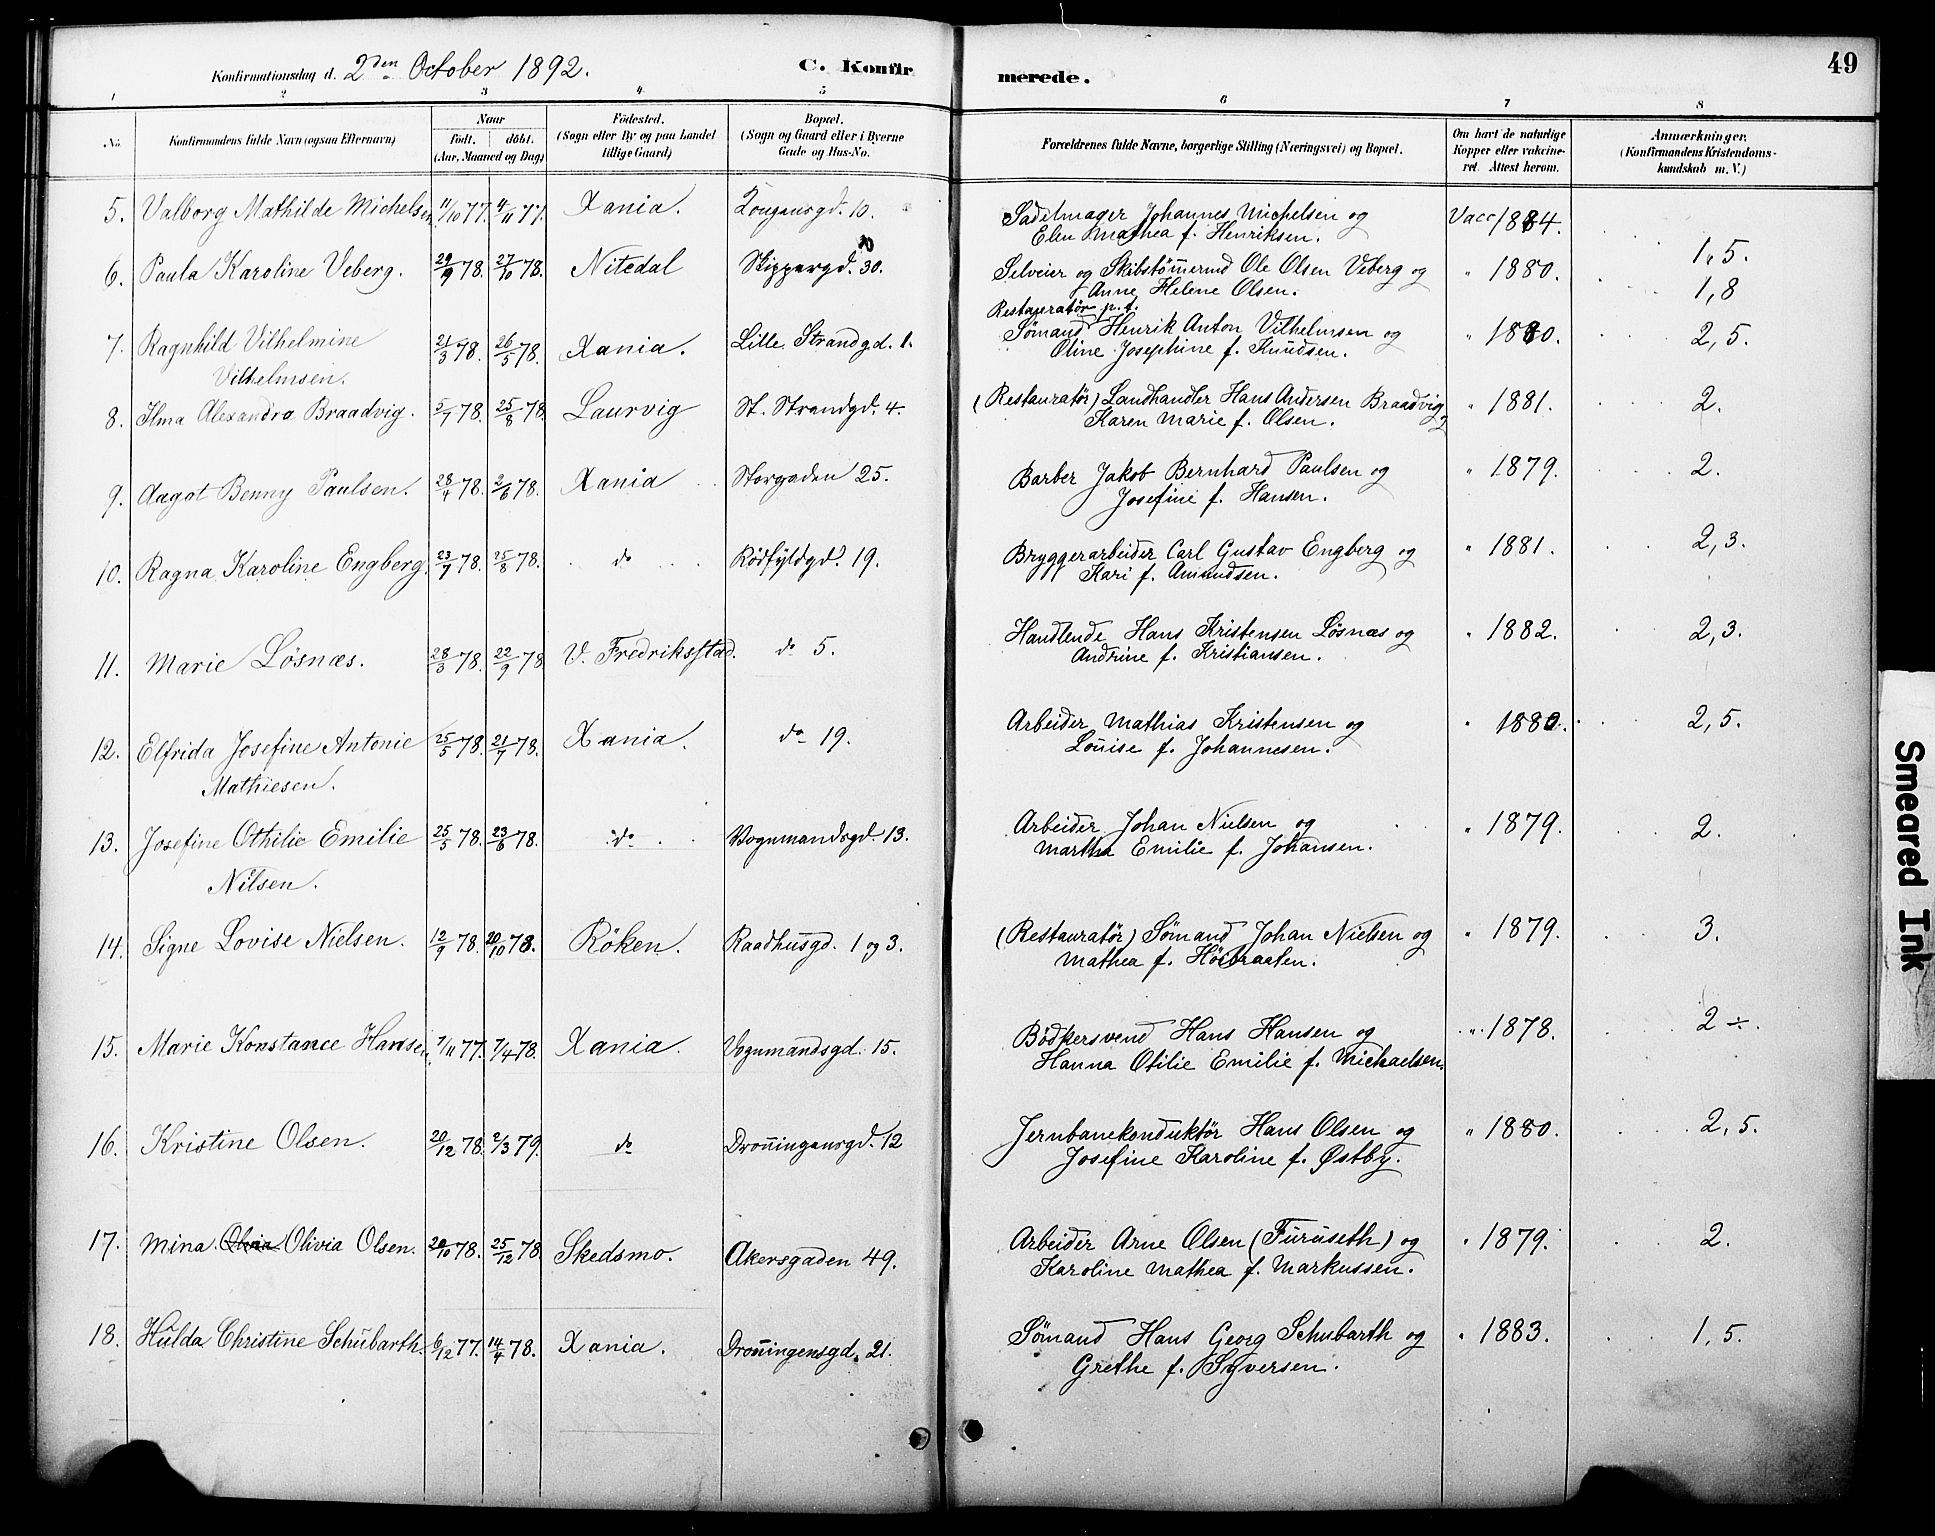 Konfirmationsdag d. 2den October 1892. C. Konfir
merede. 49
1 2 3 4 5 6 7 8
No. Konfirmandens fulde Navn (ogsaa Efternavn) Naar Født. døbt. (Aar, Maaned og Dag) Fødested. (Sogn eller By og paa Landet tillige Gaard) Bopæl. (Sogn og Gaard eller i Byerne Gade og Hus-No. Forældrenes fulde Navne, borgerlige Stilling (Næringsvei) og Bopæl. Om havt de naturlige Kopper eller vakcineret. Attest herom. Anmærkninger. (Konfirmandens Kristendomskundskab m. V.)
5. Valborg Mathilde Michelsen 11/10 77. 4/11 77. Xania. Kongensgd. 10. Sadelmager Johannes Michelsen og Vacc 1884.
Elen Mathea f. Henriksen. 1, 5.
6. Paula Karoline Veberg. 29/9 78. 27/10 78. Nitedal Skippergd. 30. Selveier og Skibstømermd Ole Olsen Veberg og " 1880.
Anne Helene Olsen. 1,8
Restauratør p.t.
7. Ragnhild Vilhelmine 21/3 78. 26/5 78. Xania. Lille Strandgd. 1. Sømand Henrik Anton Vilhelmsen og " 1880. 2, 5.
Vilhelmsen. Oline Josephine f. Knudsen.
8. Ilma Alexandra Braadvig. 5/7 78. 25/8 78. Laurvig St. Strandgd. 4. (Restauratør) Landhandler Hans Andersen Braadvig og " 1881. 2.
Karen Marie f. Olsen.
9. Aagot Benny Paulsen. 28/4 78. 2/6 78. Xania Storgaden 25. Barber Jakob Bernhard Paulsen og " 1879. 2.
Josefine f. Hansen.
10. Ragna Karoline Engberg. 23/7 78. 25/8 78. do Rødfyldgd. 19. Bryggerarbeider Carl Gustav Engberg og " 1881. 2,3.
Kari f. Amundsen.
11. Marie Løsnæs. 28/3 78. 22/9 78 V. Fredriksstad. do 5. Handlende Hans Kristensen Løsnæs og " 1882. 2,3.
Andrine f. Kristiansen.
12. Elfrida Josefine Antonie 25/5 78. 21/7 78. Xania. do 19. Arbeider Mathias Kristensen og " 1880. 2, 5.
Mathiesen. Louise f. Johannesen.
13. Josefine Othilie Emilie 25/5 78. 23/6 78. do Vognmandsgd. 13. Arbeider Johan Nielsen og " 1879. 2.
Nilsen. Martha Emilie f. Johansen.
14. Signe Lovise Nielsen. 12/9 78. 20/10 78. Röken. Raadhusgd. 1 og 3. (Restauratør) Sømand Johan Nielsen og " 1879. 3.
Mathea f. Höibraaten.
15. Marie Konstance Hansen. 7/11 77. 7/4 78. Xania. Vognmandsgd. 15. Bødkersvend Hans Hansen og " 1878. 2 ÷.
Hanna Otilie Emilie f. Michaelsen.
16. Kristine Olsen. 20/12 78. 2/3 79. do Dronningensgd. 12 Jernbanekonduktør Hans Olsen og " 1880. 2, 5.
Josefine Karoline f. Østby.
17. Mina Olivia Olsen. 20/10 78. 25/12 78 Skedsmo. Akersgaden 49. Arbeider Arne Olsen (Furuseth) og " 1879. 2.
Karoline Mathea f. Markussen.
18. Hulda Christine Schubarth. 6/12 77. 14/4 78. Xania. Dronningensgd. 21. Sømand Hans Georg Schubarth og " 1883. 1, 5.
Grethe f. Syversen.
Smeared Ink